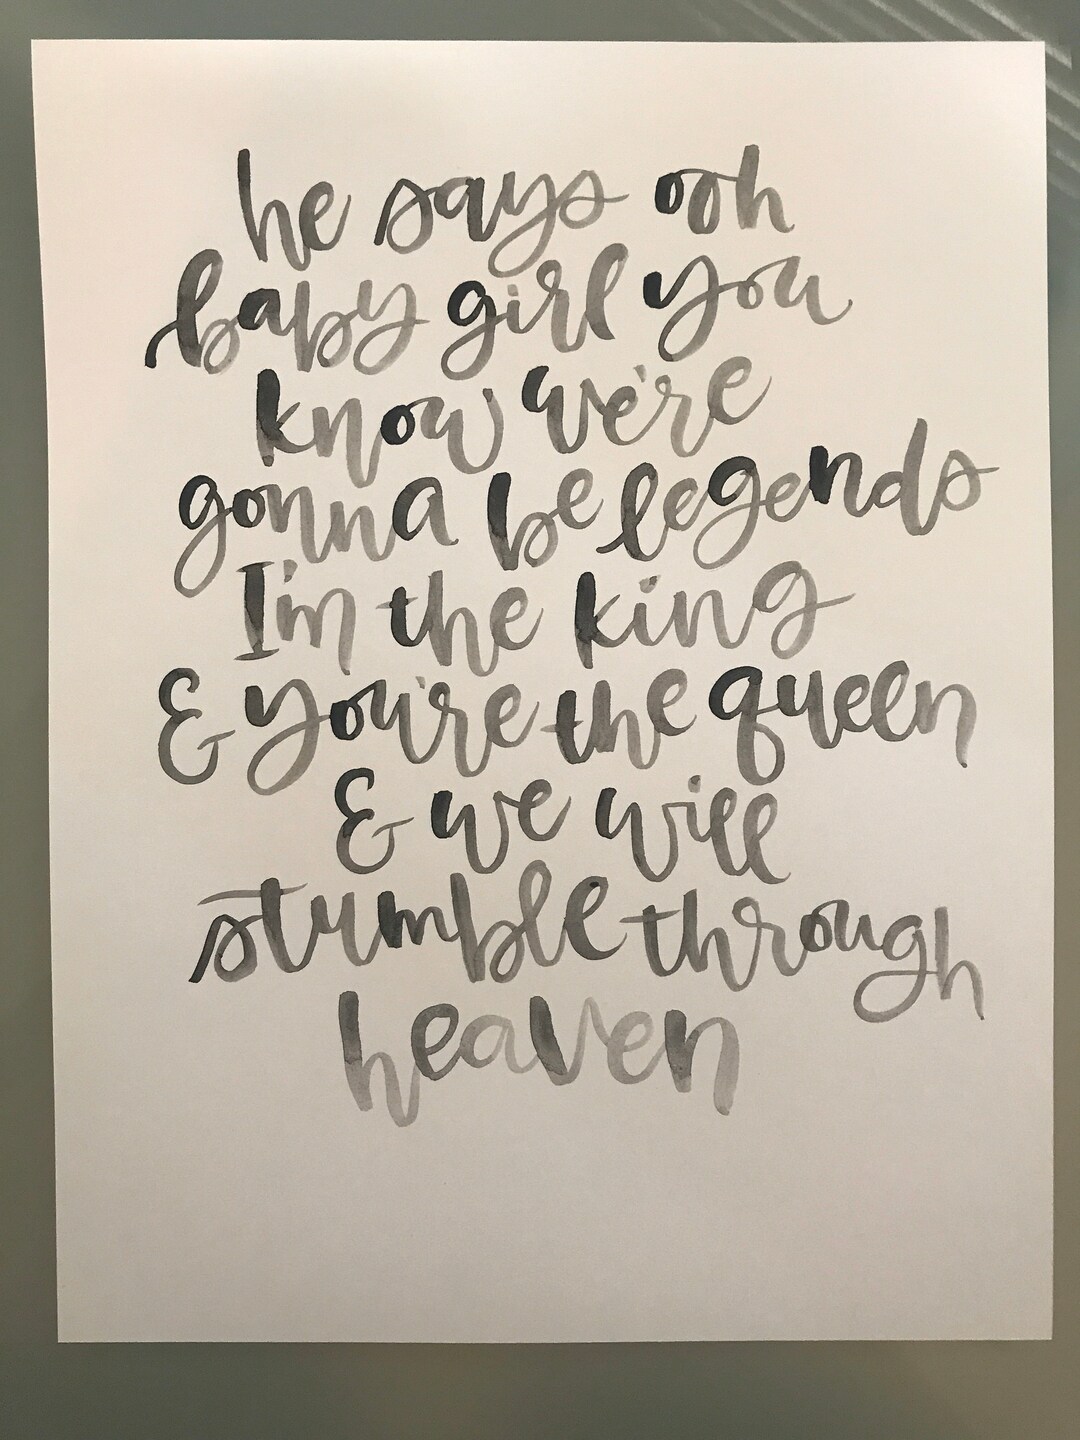 he says ooh
baby girl you
know we're
gonna be legends
I'm the king
& you're the queen
& we will
stumble through
heaven